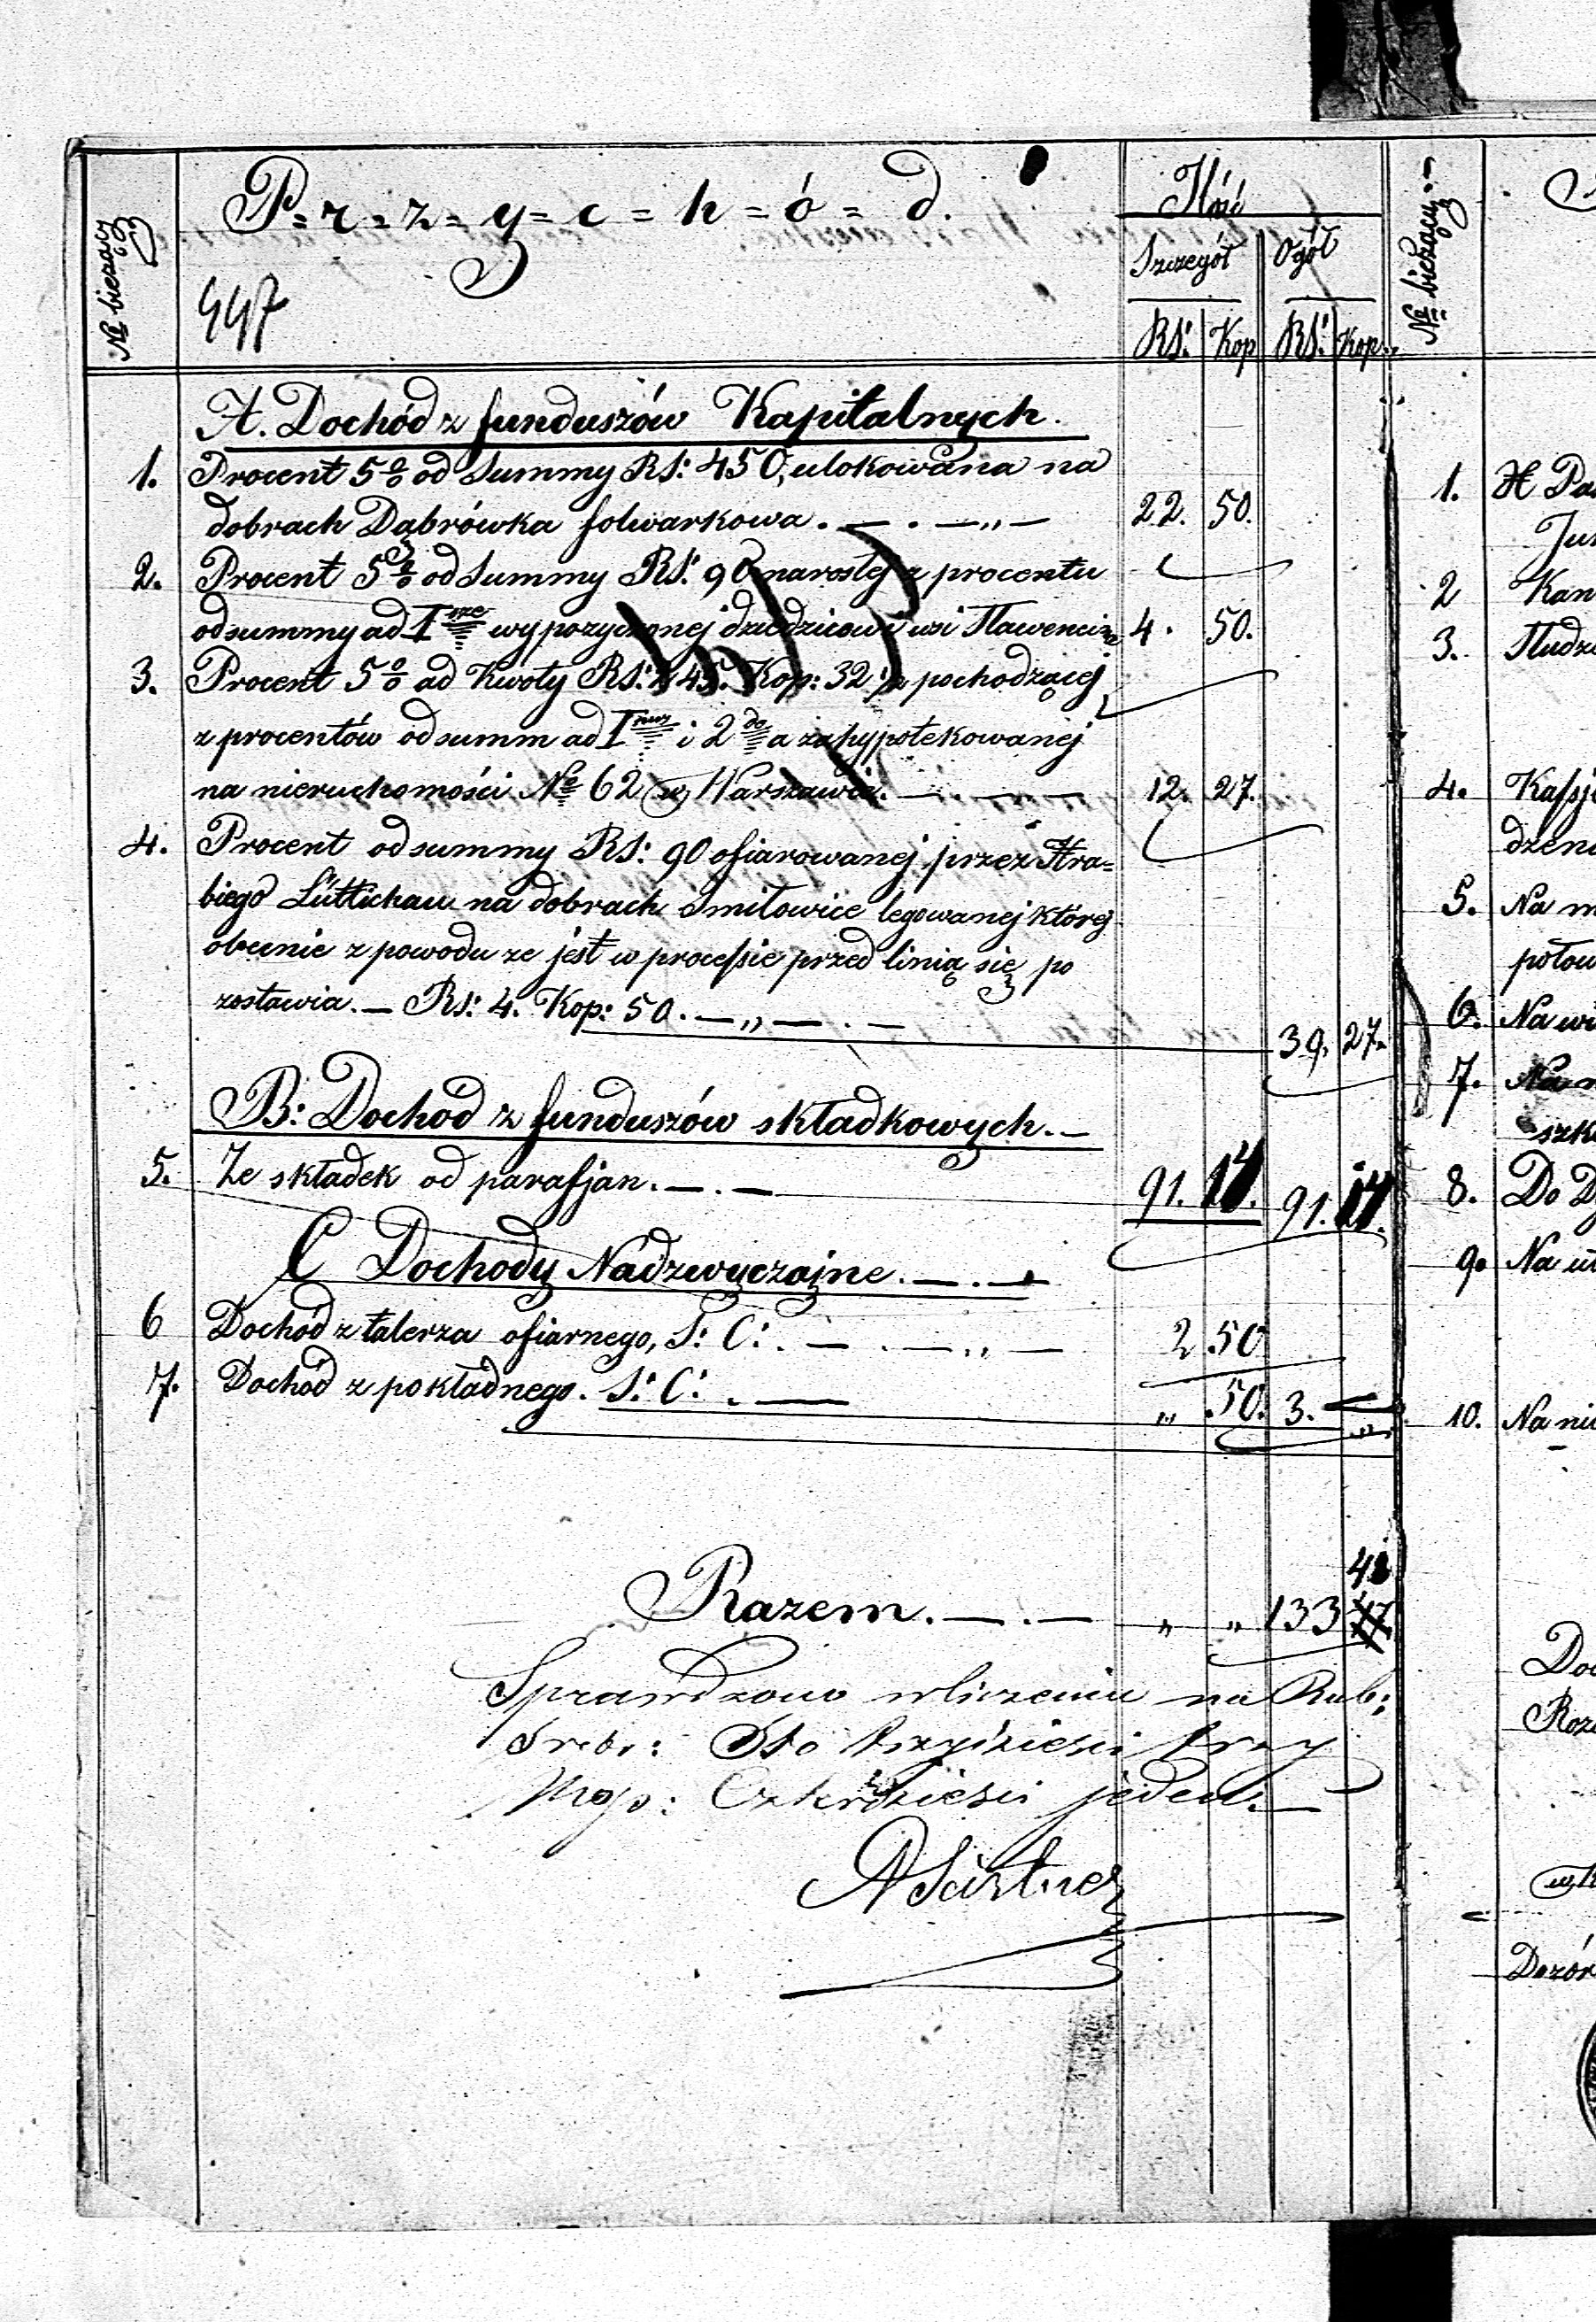 № bieżący
P=r=z=y=c=h=ó=d.
Ilość
Szczegół Ogół
RS: Kop RS: Kop.
№ bieżący
447
A. Dochód z funduszów Kapitalnych.
1. Procent 5% od Summy RS: 450, ulokowana na
dobrach Dąbrówka folwarkowa. — . — „ — 22. 50.
2. Procent 5% od Summy RS: 90 narosłej z procentu
od summy ad I wypozyczonej dziedzicowi wsi 4. 50.
3. Procent 5% ad Kwoty RS: 245. Kop: 32 ½ pochodzącej
z procentów od summ ad I i 2 a zahypotekowanej
na nieruchomości № 62 w Warszawie. — . — . — 12. 27.
4. Procent od summy RS: 90 ofiarowanej przez Hra=
biego Lüttichau na dobrach Smiłowice legowanej której
obecnie z powodu ze jest w processie przed linią się po
zostawia. — Rs: 4. Kop: 50. — „ — . — 39. 27.
B: Dochód z funduszów składkowych. —
5. Ze składek od parafjan. — . — 91. 14. 91. 14.
C Dochody Nadzwyczajne. — . —
6 Dochód z talerza ofiarnego, S: C: . — . — „ — 2 50
7. Dochód z pokładnego. S: C: . — „ 50. 3. „
41
Razem. — . — „ „ 133
Sprawdzono w liczeniu na Rub:
Sreb: Sto trzydzieści trzy
Kop: Czterdzieści jeden. —
1.
2 Kan
3.
4.
dzen
5. Na m
połow
6. Na wi
7. Na
szk
8. Do D
9. Na ut
10. Na ni
Doc
Roz
Dozór